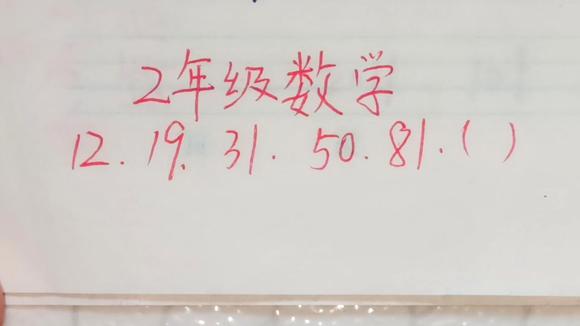 2年级数学
12. 19. 31. 50. 81. ( )